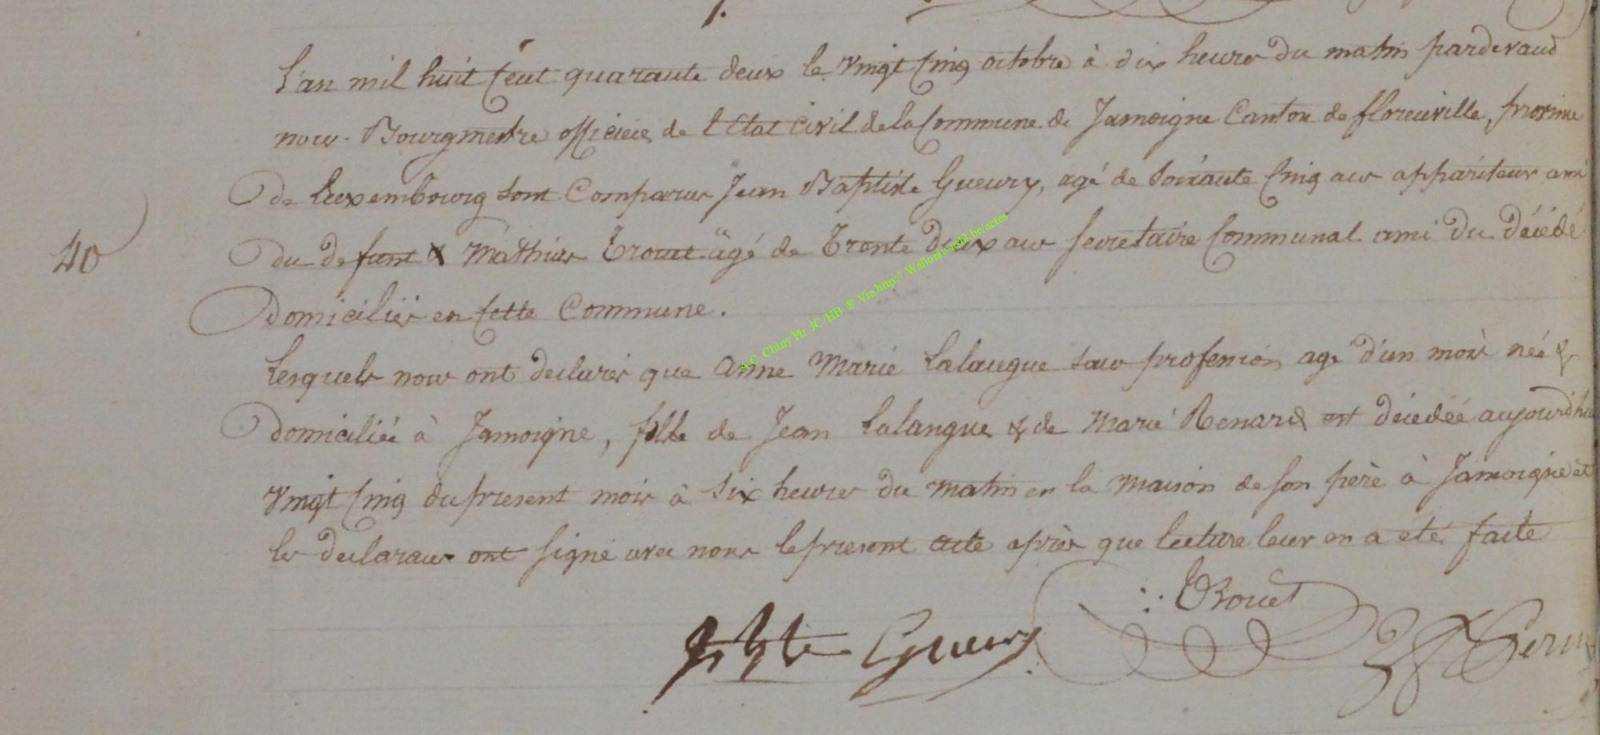 L'an mil huit cent quarante deux le vingt cinq octobre à dix heures du matin pardevand
nous Bourgmestre officier de l'Etat civil de la Commune de Jamoigne Canton de florenville, province
de Luxembourg sont Comparus Jean Baptiste Gueury, agé de soixante cinq ans appariteur ami
40
du defunt & Mathias Trouet agé de Trente deux ans secretaire Communal ami du décédé
domiciliés en cette Commune.
Lesquels nous ont declarés que Anne Marie Lalangue sans profession agé d'un mois née &
domiciliée à Jamoigne, fille de Jean Lalangue & de Marie Renard est décédée aujourd'hui
vingt cinq du present mois à six heures du matin en la maison de son père à Jamoigne et
les declarans ont signé avec nous le present acte après que lecture leur en a eté faite
Trouet
Gueury